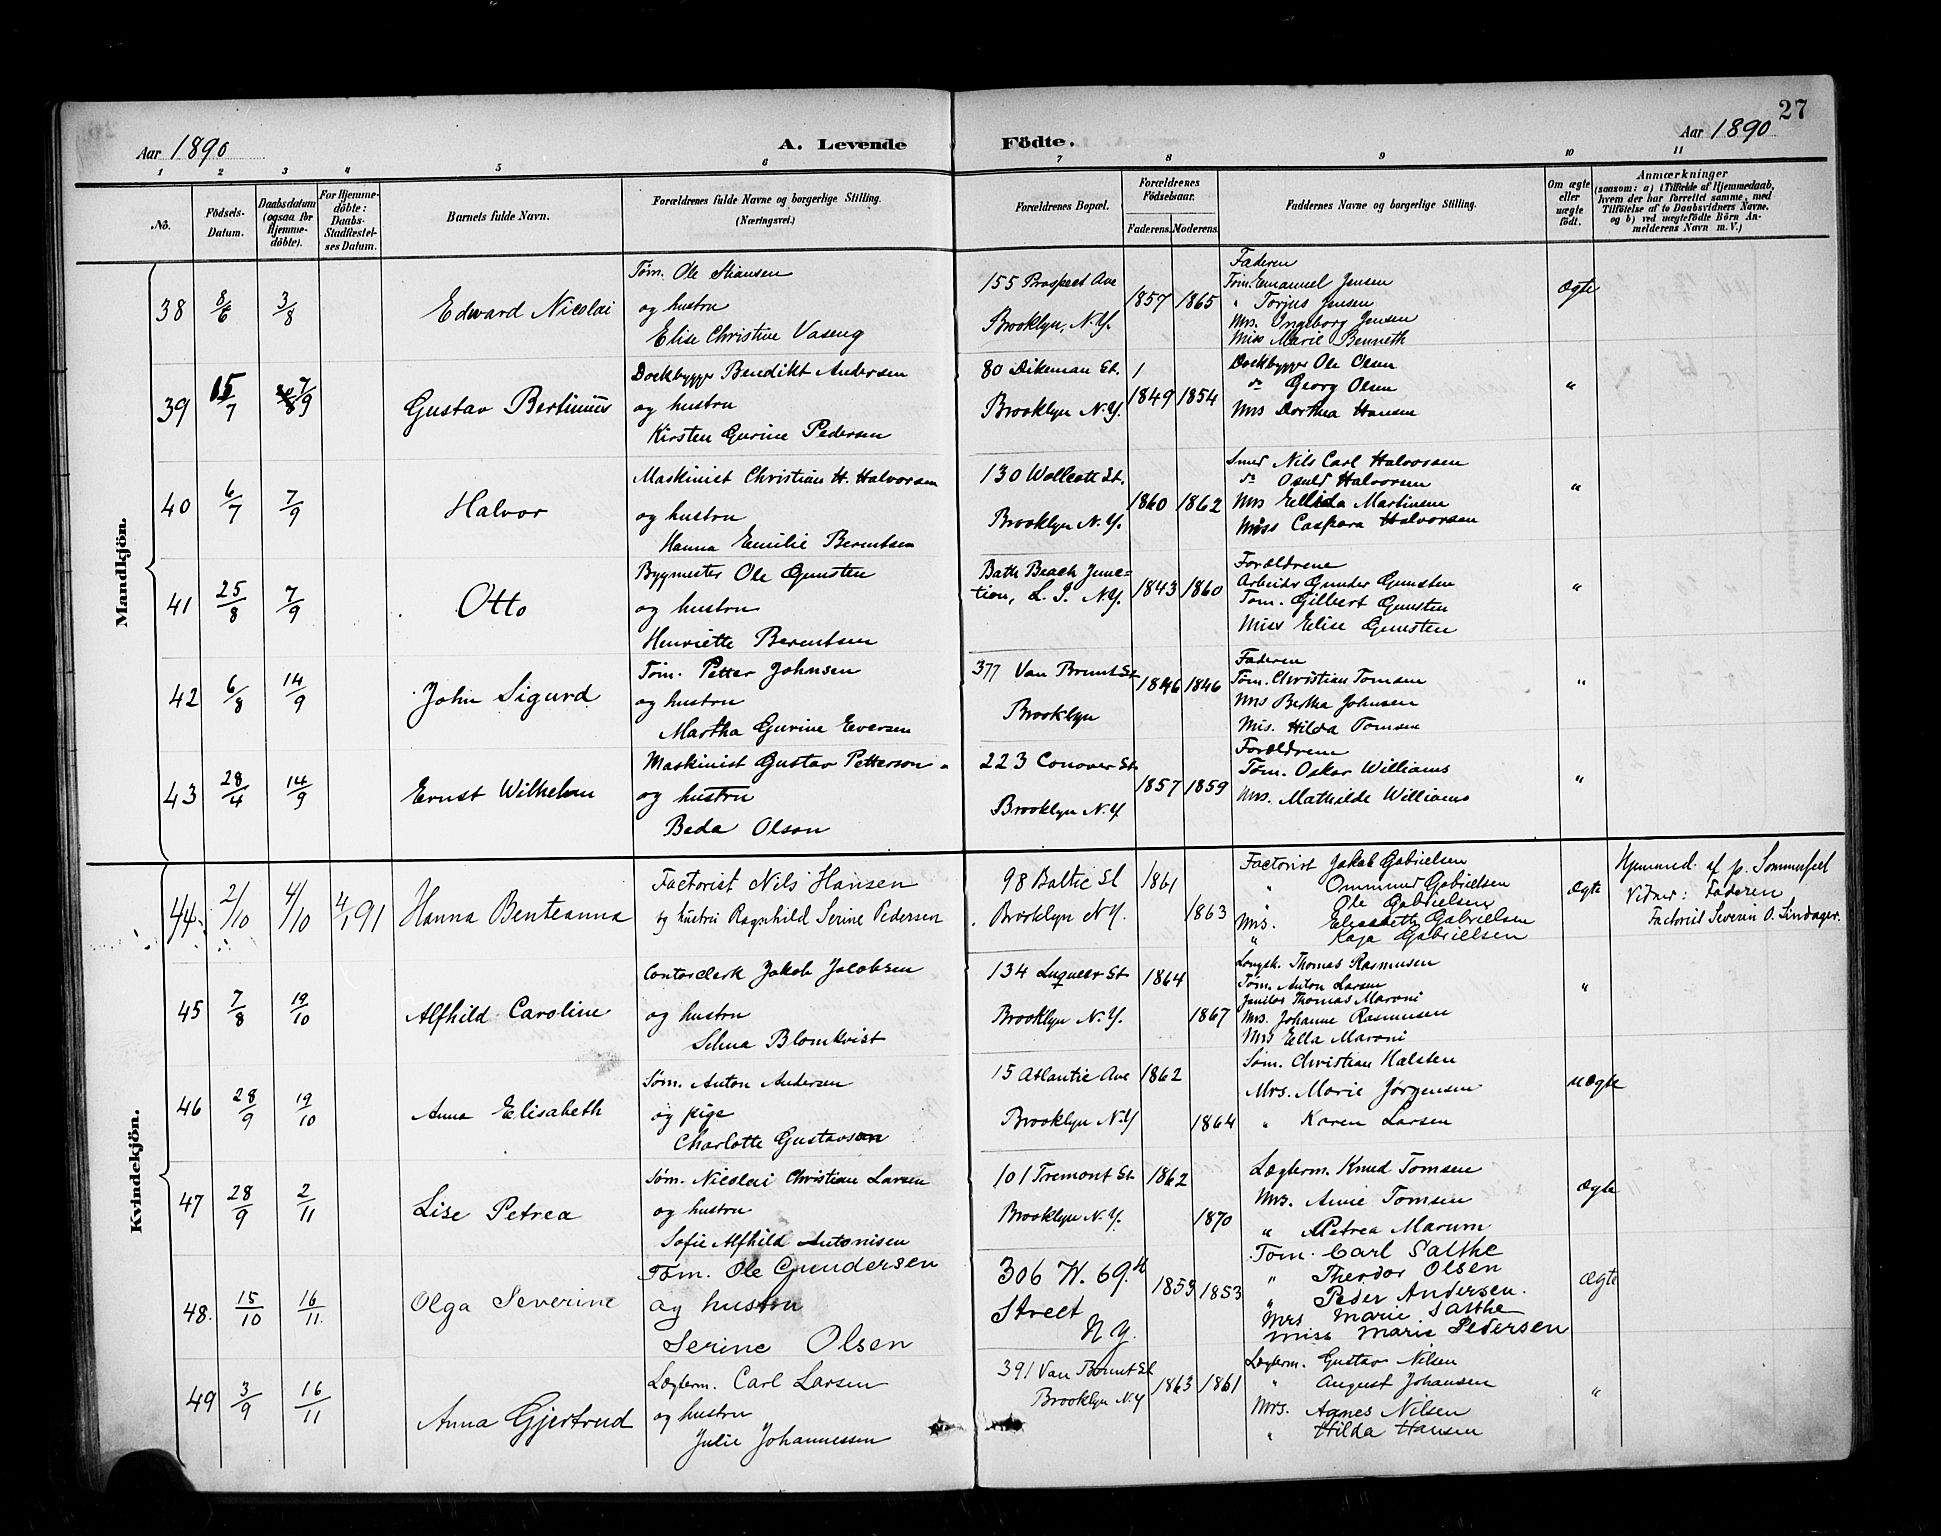 27
Aar 1890
A. Levende Födte.
Aar 1890
1 2 3 4 5 6 7 8 9 10 11
No.
Födsels-Datum.
Daabsdatum (ogsaa for Hjemme-döbte).
For Hjemme-döbte: Daabs-Stadfæstel-ses Datum.
Barnets fulde Navn.
Forældrenes fulde Navne og borgerlige Stilling.
(Næringsvei.)
Forældrenes Bopæl.
Forældrenes Födselsaar.
Faderens. Moderens.
Faddernes Navne og borgerlige Stilling.
Om ægte eller uægte födt.
Anmærkninger
(saasom: a) i Tilfælde af Hjemmedaab,
hvem der har forrettet samme, med
Tilföielse af to Daabsvidners Navne.
og b) ved uægtefödte Börn An-
melderens Navn m. V.)
Mandkjön.
38 8/6 3/8 Edward Nicolai
Tøm. Ole
og hustru
Elise Christine Vaseng
155 Prospect Ave
Brooklyn, N.Y.
1857 1865
Faderen
Tøm. Emanuel Jensen
" Torjus Jensen
Mrs. Ingeborg Jensen
Miss Marie Benneth
Ægte
39 15/7 7/9 Gustav Bertinius
Dockbygger Bendikt Andersen
og hustru
Kirsten Gurine Pedersen
80 Dikeman St.
Brooklyn N.Y.
1849 1854
Dockbygger Ole Olsen
do Georg Olsen
Mrs Dorthea Hansen
"
40 6/7 7/9 Halvor
Maskinist Christian H. Halvorsen
og hustru
Hanna Emilie Berentsen
130 Wollcott St.
Brooklyn N.Y.
1860 1862
Smed Nils Carl Halvorsen
do Osuld Halvorsen
Mrs Ellida Martinsen
Miss Caspara Halvorsen
"
41 25/8 7/9 Otto
Bygmester Ole Gunsten
og hustru
Henriette Berentsen
Bath Beach Junc=
tion, L. I. N.Y.
1843 1860
Forældrene
Arbeider Gunder Gunsten
Tøm. Gilbert Gunsten
Miss Elise Gunsten
"
42 6/8 14/9 John Sigurd
Tøm. Petter Johnsen
og hustru
Martha Gurine Eversen
377 Van Brunt St
Brooklyn
1846 1846
Faderen
Tøm. Christian Tomsen
Mrs Bertha Johnsen
Mis. Hilda Tomsen
"
43 28/4 14/9 Ernst Wilhelm
Maskinist Gustav Petterson
og hustru
Beda Olson
223 Conover St.
Brooklyn N.Y
1857 1859
Forældrene
Tøm. Oskar Williams
Mrs. Mathilde Williams
"
Kvindekjön.
44 2/10 4/10 91 Hanna Benteanna
Factorist Nils Hansen
og hustru Ragnhild Serine Pedersen
98 Baltic St
Brooklyn N.Y.
1861 1863
Factorist Jakob Gabrielsen
" Ommund Gabrielsen
Ole Gabrielsen
Mrs. Elisabeth Gabrielsen
" Kaja Gabrielsen
Ægte
Hjemmed. af p. Sommerfelt
Vidner: Faderen
Factorist Severin O. Lindager.
45 7/8 19/10 Alfhild Caroline
Contorclerk Jakob Jacobsen
og hustru
Selma Blomkvist
134 Luqueer St
Brooklyn N.Y.
1864 1867
Longsh. Thomas Rasmusen
Tøm. Anton Larsen
Janitor Thomas Maroni
Mrs. Johanne Rasmusen
Mrs Ella Maroni
"
46 28/9 19/10 Anna Elisabeth
Søm. Anton Andersen
og pige
Charlotte Gustavson
15 Atlantic Ave
Brooklyn N.Y
1862 1864
Søm. Christian Halsten
Mrs. Marie Jørgensen
" Karen Larsen
uægte
47 28/9 2/11 Lise Petrea
Søm. Nicolai Christian Larsen
og hustru
Sofie Alfhild Antonisen
101 Tremont St.
Brooklyn N.Y.
1862 1870
Lægterm. Knud Tomsen
Mrs. Anne Tomsen
" Petrea Marum
Ægte
48. 15/10 16/11 Olga Severine
Tøm. Ole Gundersen
og hustru
Serine Olsen
306 W. 69.th
Street
N.Y.
1853 1853
Tøm. Carl Salthe
" Theodor Olsen
" Peder Andersen.
Mrs Marie Salthe
Miss Marie Pedersen
Ægte
49 3/9 16/11 Anna Gjertrud
Lægterm. Carl Larsen
og hustru
Julie Johannessen
391 Van Brunt St
Brooklyn N.Y
1863 1861
Lægterm. Gustav Nilsen
" August Johansen
Mrs. Agnes Nilsen
" Hilda Hansen
"